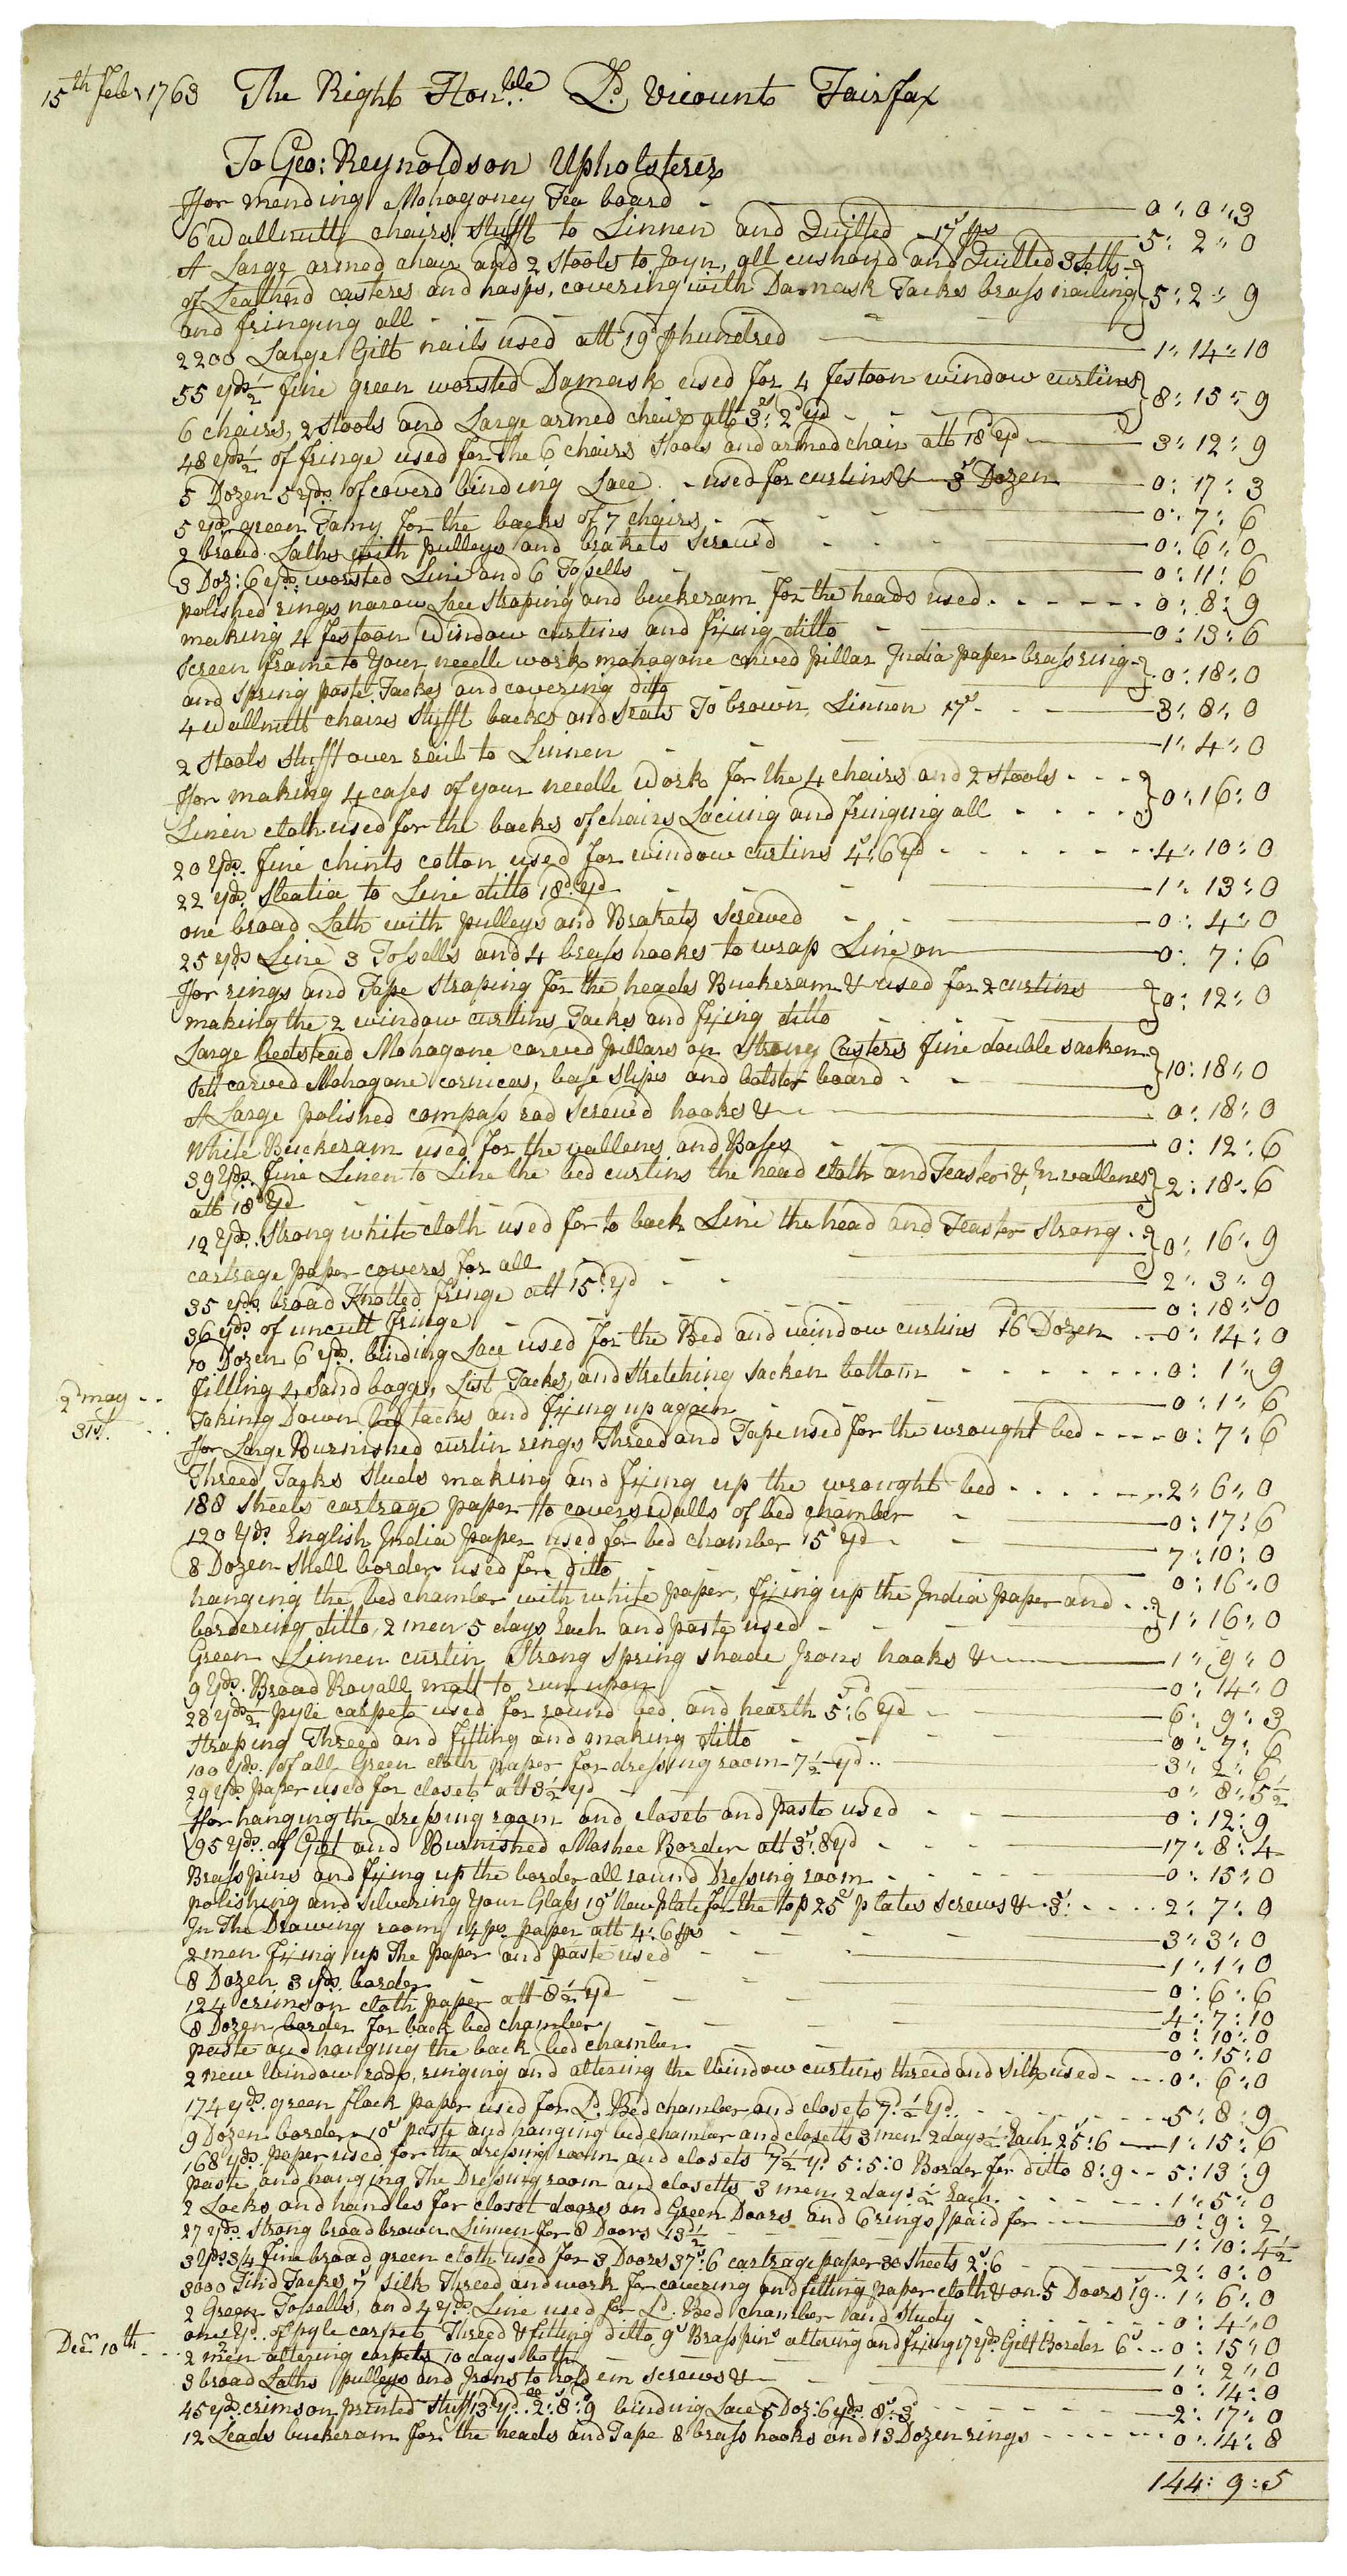 15th Feb: 1763 The Right Honble Ld Vicount Fairfax
To Geo: Reynoldson Upholsterer
ffor mending Mohogoney Tea board - 0: 0: 3
6 Wallnutt chairs Stufft to Linnen and Quilted 17s ps 5: 2: 0
A Large armed chair and 2 Stools to Joyn, all cushond and Quilted 3 Setts
of Leathrd casteres and hasps, covering with Damask Tackes brass nailing 5: 2: 9
and fringing all
2200 Large Gilt nails used att 19d hundred 1: 14: 10
55 yds 1/2 fine green worsted Damask used for 4 festoon window curtins 8: 15: 9
6 chairs, 2 stools and Large armed chair att 3s: 2d yd
48 yds 1/2 of fringe used for the 6 chairs Stools and armed chair att 18d yd 3: 12: 9
5 Dozen 5 yds of coverd binding Lace. - used for curtins & 3s Dozen 0: 17: 3
5 yds green Tamy for the backs of 7 chairs 0: 7: 6
2 broad Laths with pulleys and brakets Screwd 0: 6: 0
3 Doz: 6 yds worsted Line and 6 Tossells 0: 11: 6
polished rings narow Lace Straping and buckeram for the heads used 0: 8: 9
making 4 festoon Window curtins and fixing ditto 0: 13: 6
Screen frame to Your needle work mahogone carved pillar India paper brass ring
and Spring paste Tackes and covering ditto 0: 18: 0
4 Wallnutt chairs Stufft backes and Seats To brown Linnen 17s 3: 8: 0
2 Stools Stufft over rail to Linnen 1: 4: 0
ffor making 4 cases of your needle work for the 4 chairs and 2 Stools 0: 16: 0
Linen cloth used for the backs of chairs Laceing and fringing all
20 Yds fine chints cotton used for window curtins 4s: 6 yd 4: 10: 0
22 yds Sleatia to Line ditto 18d yd 1: 13: 0
one broad Lath with pulleys and Brakets Screwed 0: 4: 0
25 yds Line 3 Tossells and 4 brass hookes to wrap Line on 0: 7: 6
ffor rings and Tape Straping for the heades Buckeram & used for 2 curtins 0: 12: 0
making the 2 window curtins Tackes and fixing ditto
Large bedstead Mohagone carved pillars on Strong Casteres fine double sacken
Sett carved Mohagone cornices, base Slips and bolster board 10: 18: 0
A Large polished compass rod screwd hookes & 0: 18: 0
White Buckeram used for the vallens and Bases 0: 12: 6
39 Yds fine Linen to Line the bed curtins the head cloth and Teaster & In vallenes 2: 18: 6
att 18d Yd
12 Yds Strong white cloth used for to back Line the head and Teaster Strong 0: 16: 9
cartrage paper coveres for all
35 yds broad Knotted fringe att 15d yd 2: 3: 9
36 yds of uncutt fringe 0: 18: 0
10 Dozen 6 yds binding Lace used for the Bed and window curtins 16 Dozen 0: 14: 0
filling 4 Sand baggs, List Tackes, and Stretching sacken bottom 0: 1: 9
2d may Taking Down bed tacks and fixing up again 0: 1: 6
31st. ffor Large Burnished curtin rings Threed and Tape used for the wrought bed 0: 7: 6
Threed Tacks Studs making and fixing up the wrought bed 2: 6: 0
188 Sheets cartrage paper to covers walls of bed chamber 0: 17: 6
120 Yds English India paper used for bed chamber 15d yd 7: 10: 0
8 Dozen Shell border used for ditto 0: 16: 0
hanging the bed chamber with white paper, fixing up the India paper and
bordering ditto, 2 men 5 days Each and paste used 1: 16: 0
Green Linnen curtin Strong Spring shade Irons hooks & 1: 9: 0
9 Yds Broad Royall matt to run upon 0: 14: 0
28 yds 1/2 pyle carpet used for round bed and hearth 5s: 6d yd 6: 9: 3
Straping Threed and fitting and making ditto 0: 7: 6
100 Yds of all Green cloth paper for dressing room 7 1/2 yd 3: 2: 6
29 yds paper used for closet att 3 1/2 yd 0: 8: 5 1/2
ffor hanging the dressing room and closet and paste used 0: 12: 9
95 yds of Gilt and Burnished Mashee Border att 3s: 8 yd 17: 8: 4
Brass pins and fixing up the border all round Dressing room 0: 15: 0
polishing and Silvering Your Glass 19s New plate for the top 25s plates Screws & 3s 2: 7: 0
In The Drawing room 14 ps paper att 4: 6 ps 3: 3: 0
2 men fixing up The paper and paste used 1: 1: 0
8 Dozen 3 yds border 0: 6: 6
124 crimson cloth paper att 8 1/2 yd 4: 7: 10
8 Dozen border for back bed chamber 0: 10: 0
paste and hanging the back bed chamber 0: 15: 0
2 new Window rods, ringing and altering the Window curtins threed and Silk used 0: 6: 0
174 yds green flock paper used for Ld Bed chamber and closets 7 1/2 yd 5: 8: 9
9 Dozen border 10s paste and hanging bed chamber and closetts 3 men 2 days 1/2 Each 25s: 6 1: 15: 6
168 yds paper used for the dressing room and closets 7 1/2 yd 5: 5: 0 Border for ditto 8: 9 5: 13: 9
paste and hanging The Dressing room and closetts 3 men 2 days 1/2 Each 1: 5: 0
2 Locks and handles for closet doores and Green Doors and 6 rings paid for 0: 9: 2
27 yds Strong broad brown Linnen for 8 Doors 13 1/2 1: 10: 4 1/2
3 yds 3/4 fine broad green cloth used for 3 Doores 37s: 6 cartrage paper 30 Sheets 2s: 6 2: 0: 0
3000 Tind Tackes 7s Silk Threed and work for covering and fitting paper cloth & on 5 Doors 19s 1: 6: 0
2 Green Tossells, and 4 yds Line used for Ld Bed chamber and Study 0: 4: 0
one yd 1/2 of pyle carpet Threed & fitting ditto 9s Brass pins altering and fixing 17 yds Gilt Border 6s 0: 15: 0
Decr 10th 2 men altering carpets 10 days both 1: 2: 0
3 broad Laths pulleys and Irons to hold em screws & 0: 14: 0
45 yds crimson printed stuff 13d yd 2: 8: 9 binding Lace 5 Doz: 6 yds 8s: 3 2: 17: 0
12 Leads buckeram for the heads and Tape 8 brass hooks and 13 Dozen rings 0: 14: 8
144: 9: 5